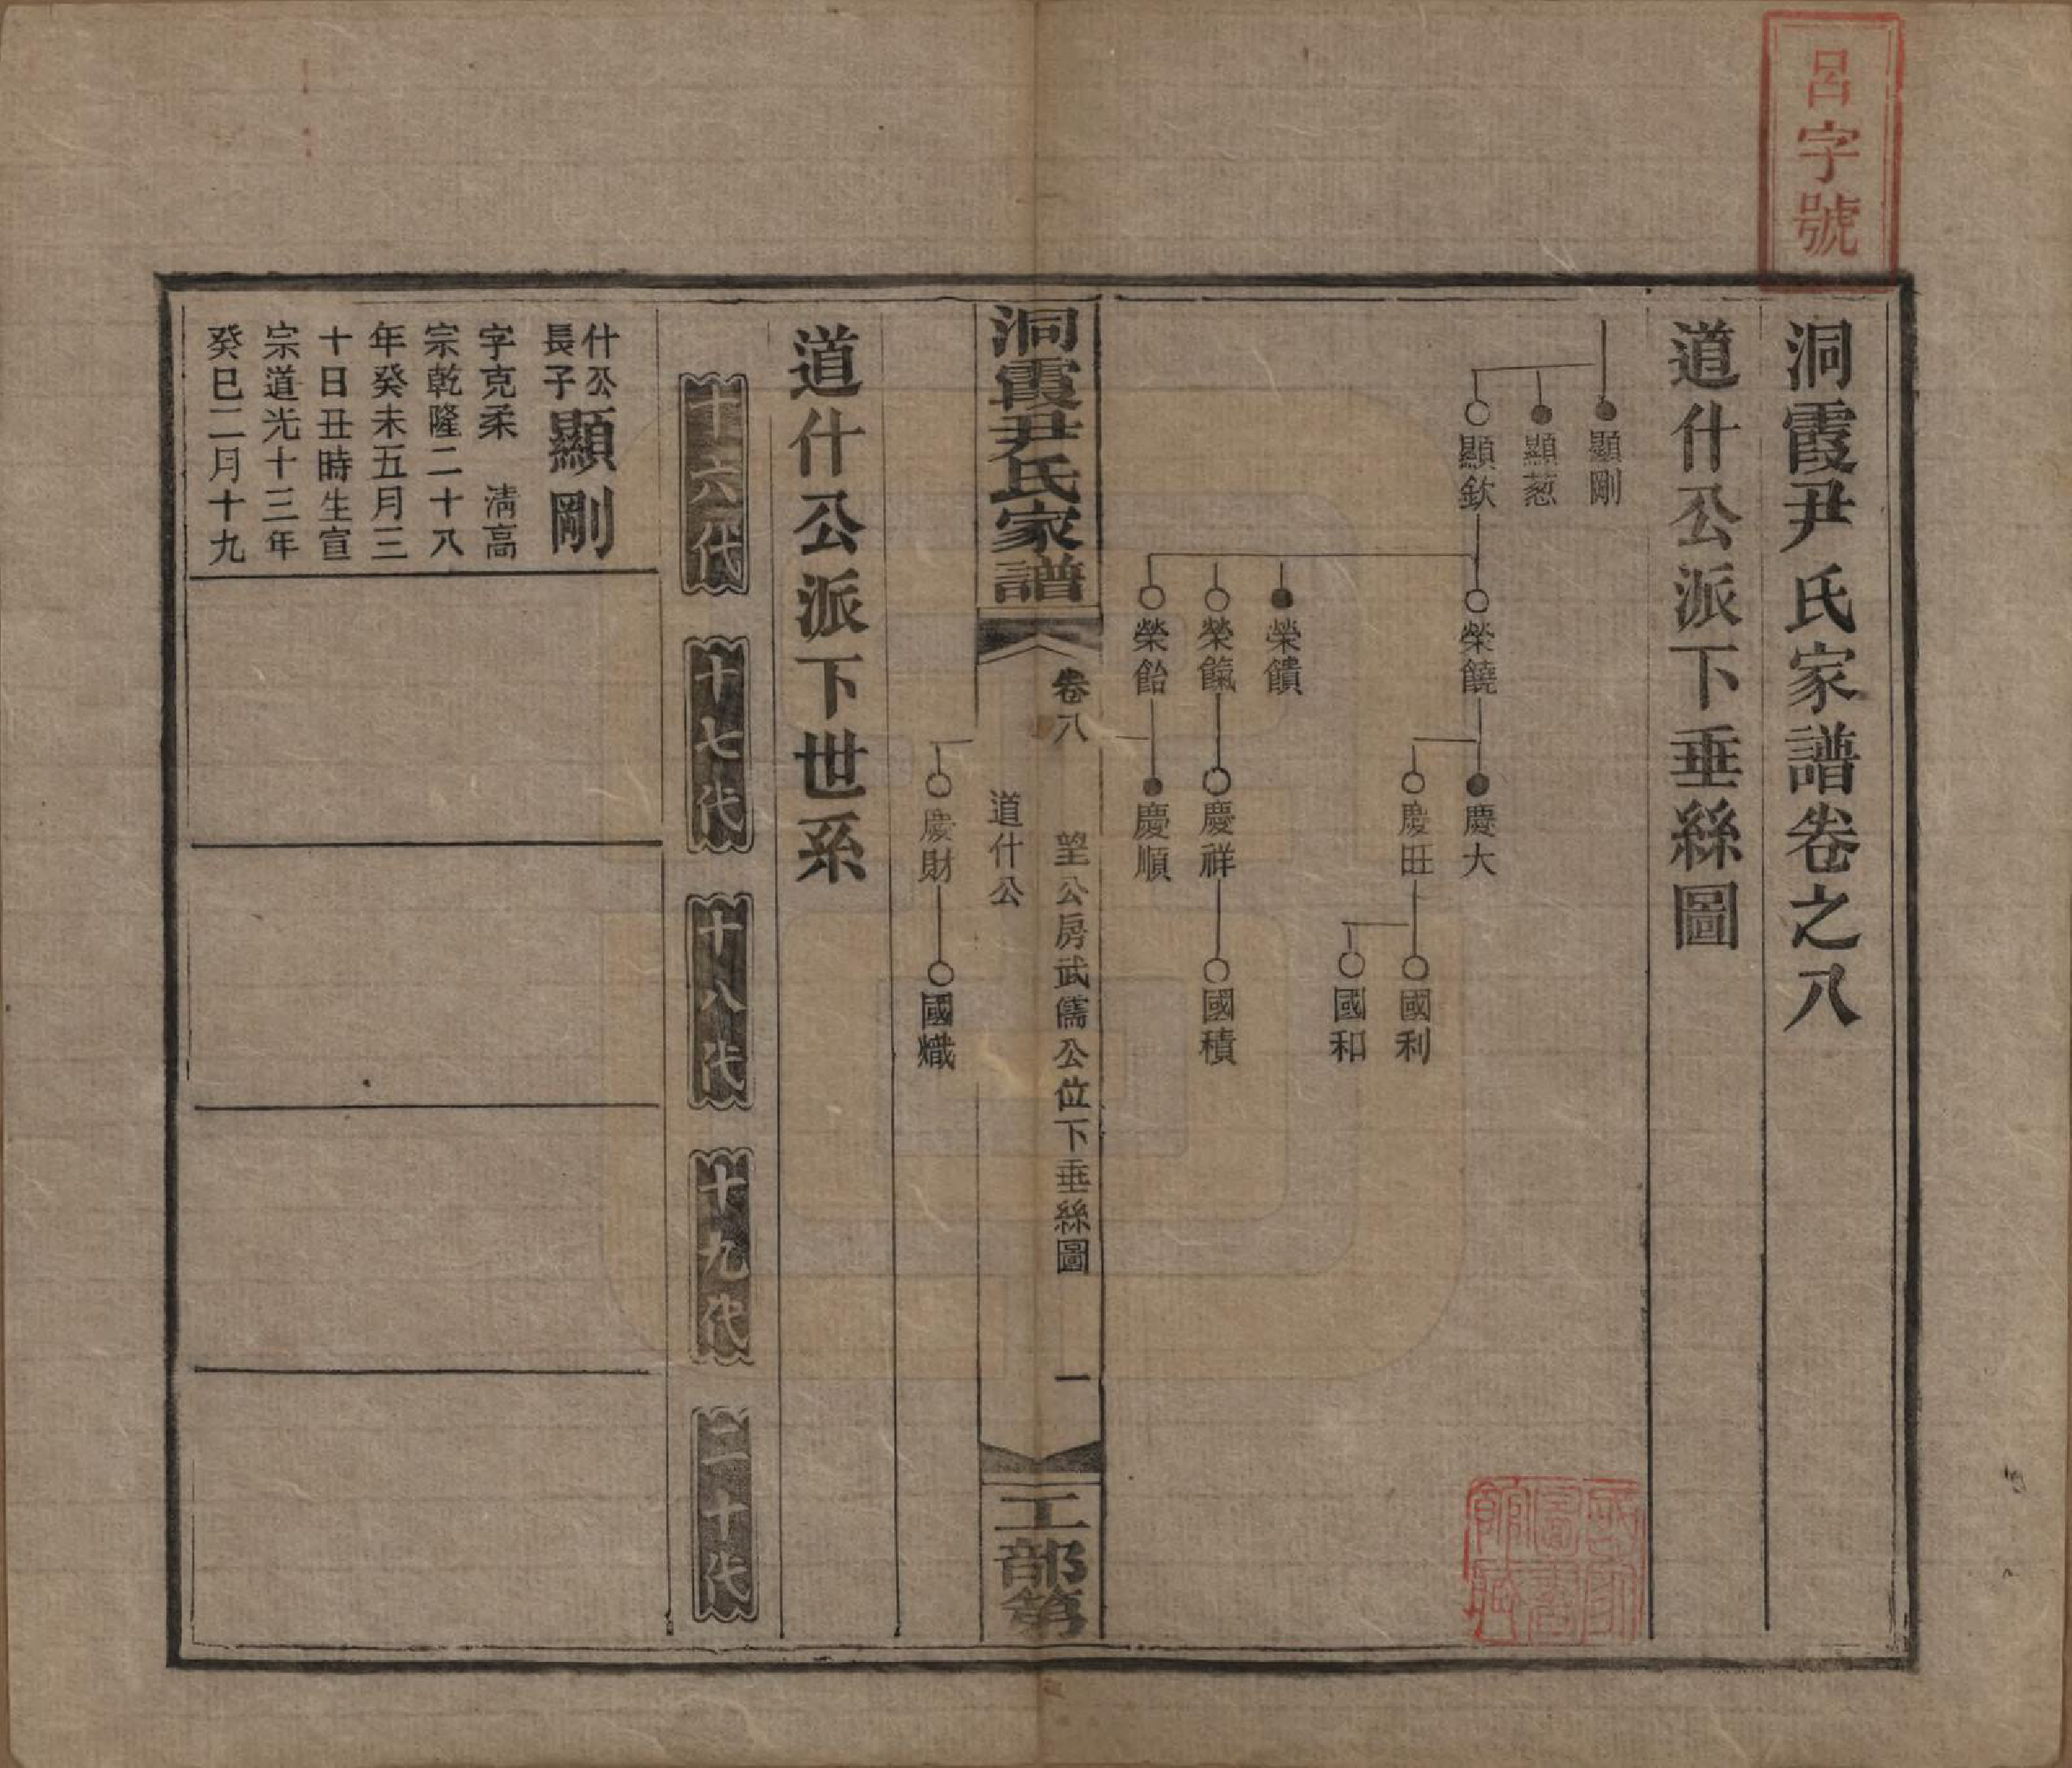 呂字號
洞霞尹氏家譜卷之八
道什公派下垂絲圖
顯剛
顯葱
顯欽
榮饒
榮饋
榮餼
榮飴
慶大
慶旺
慶祥
慶順
國利
國和
國積
國家圖書館藏
洞霞尹氏家譜
卷八
望公房武儒公位下垂絲圖
一
道什公
工部第
慶財
國熾
道什公派下世系
十六代
十七代
十八代
十九代
二十代
什公
長子
顯剛
字克柔 清高
宗乾隆二十八
年癸未五月三
十日丑時生宣
宗道光十三年
癸巳二月十九